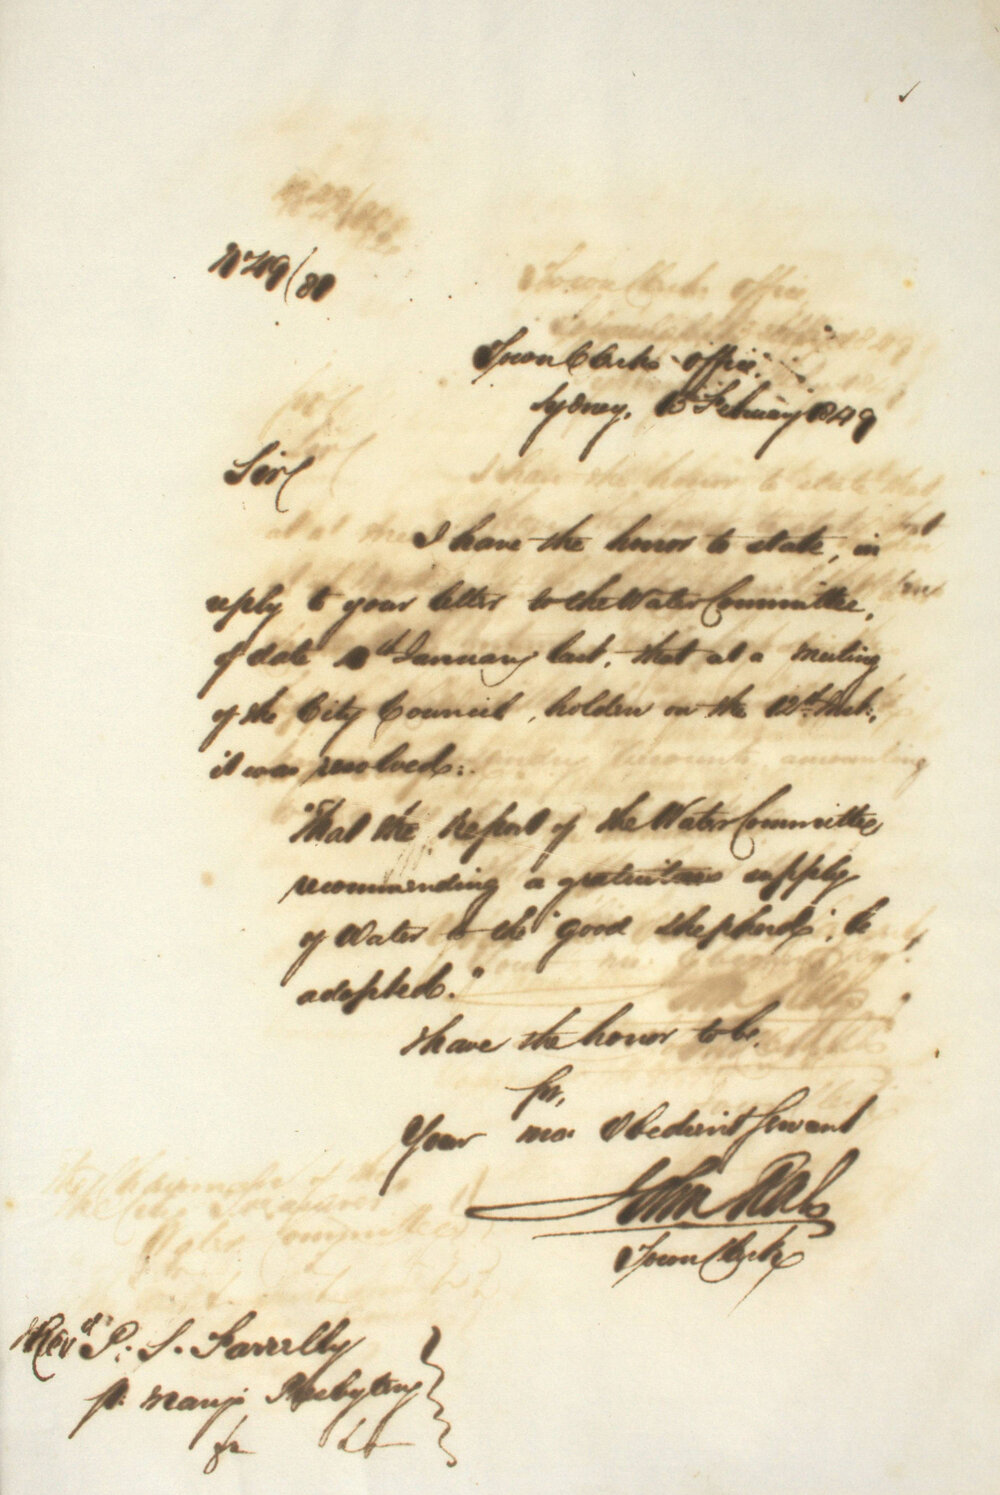 No 49/80
Town Clerks office.
Sydney, February 1849
Sir
I have the honor to state, in
reply to your letter to the Water Committee,
of date January last, that at a meeting
of the City Council, holden on the 12th Inst.,
it was resolved:
"That the Report of the Water Committee
recommending a gratuitous supply
of Water to the "Good Shepherd", be
adopted."
I have the honor to be,
Sir,
Your mo: Obedient Servant
John Rae
Town Clerk
Revd P. S. Farrelly
St. Marys Presbytery
&c &c